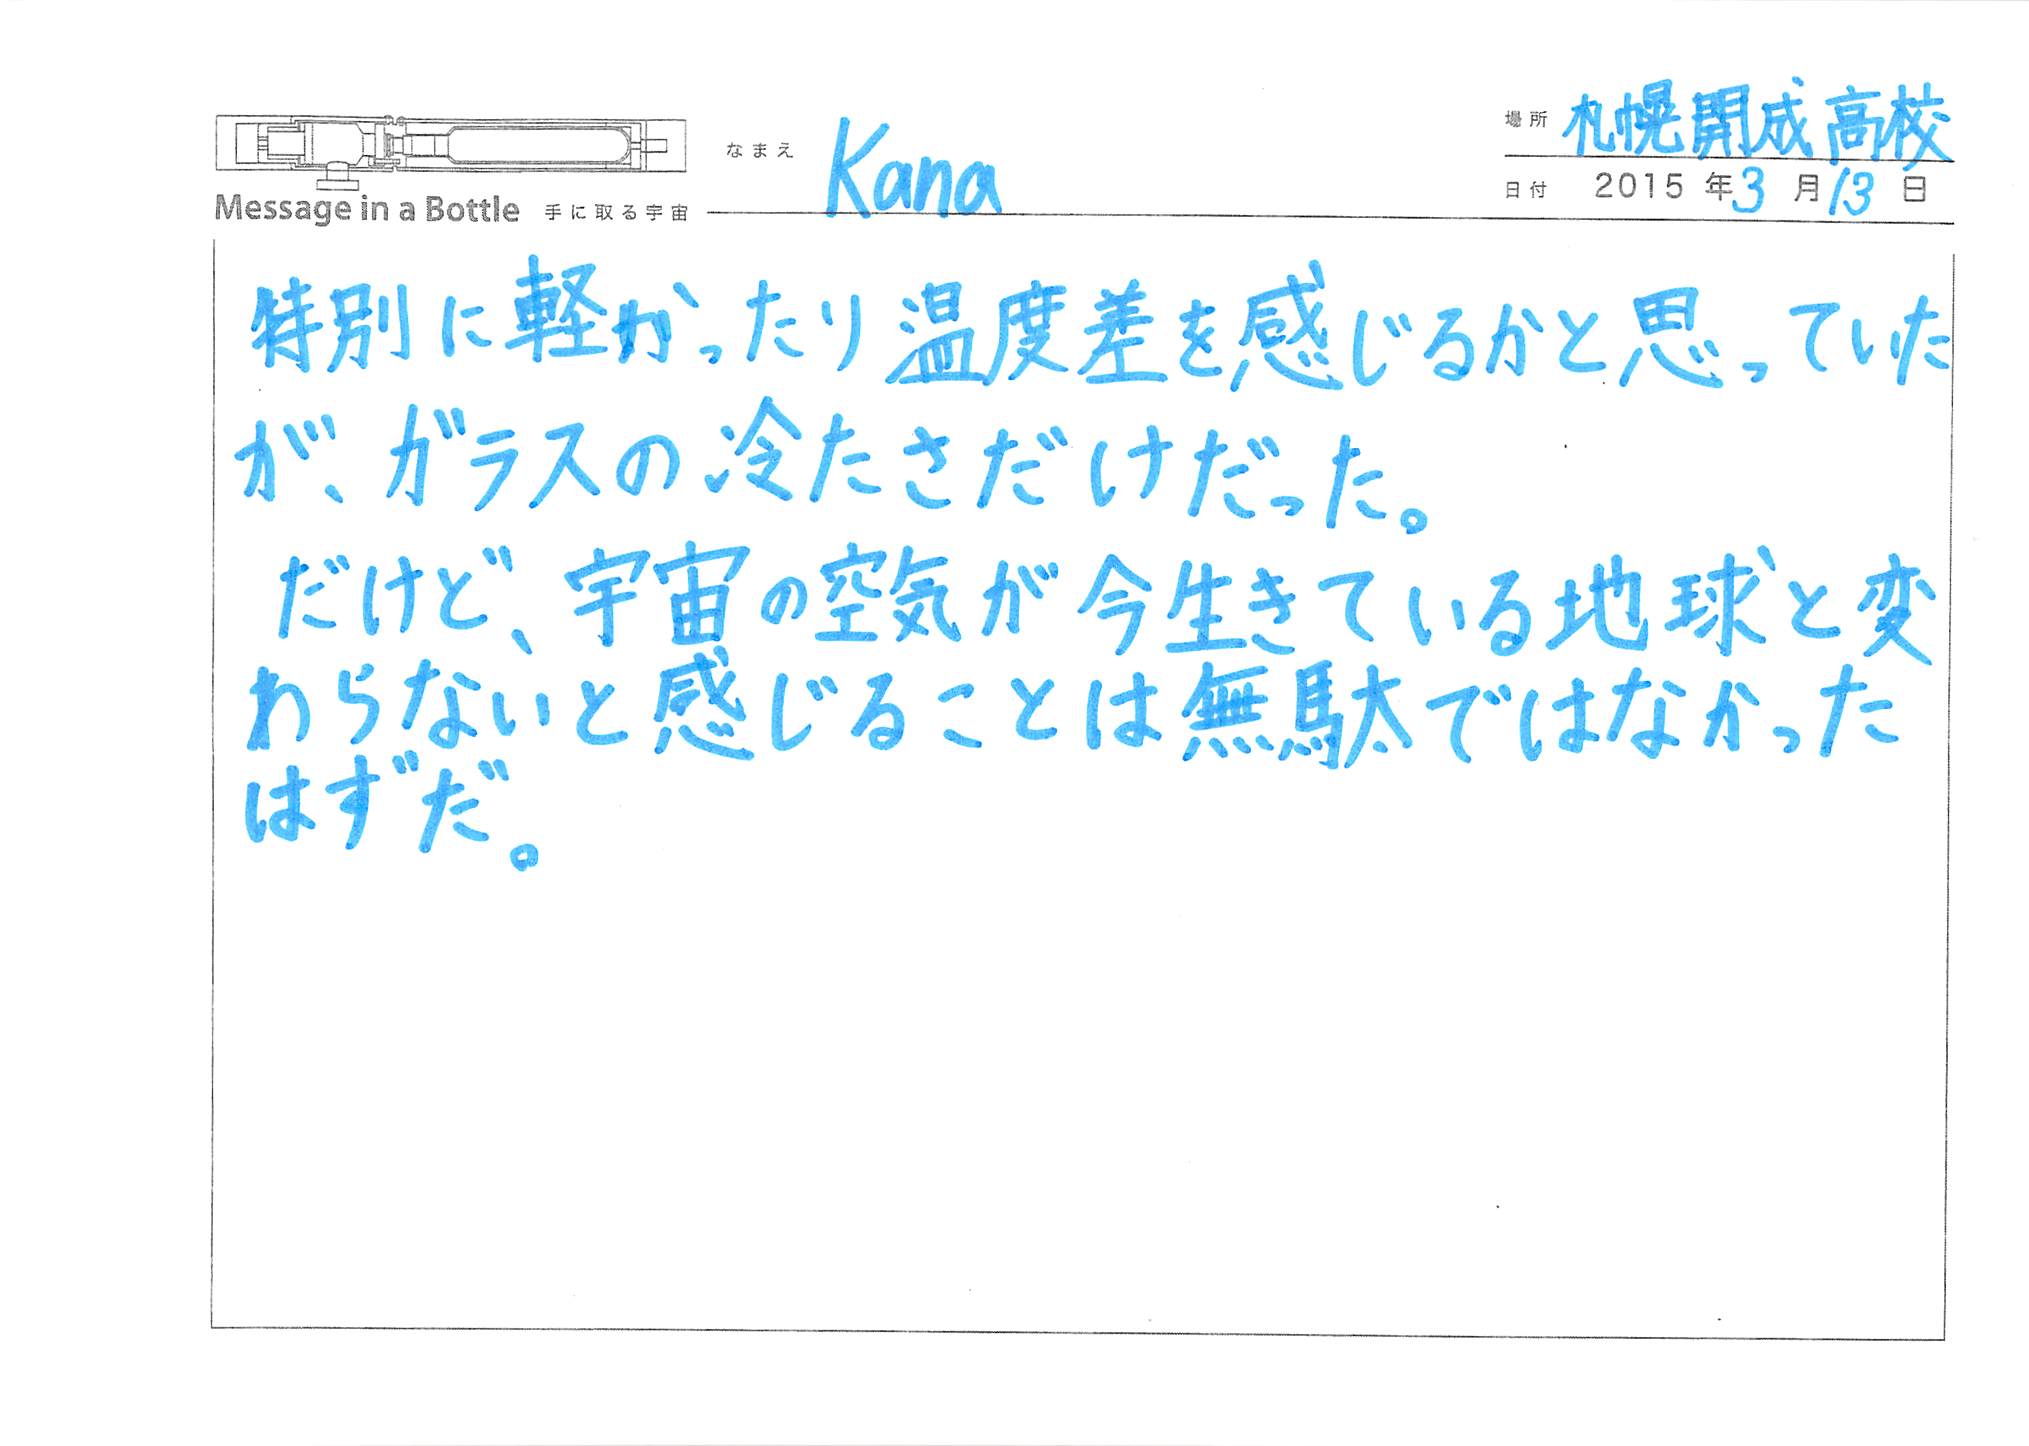 場所 札幌開成高校
なまえ Kana
日付 2015 年 3 月 13 日
Message in a Bottle 手に取る宇宙
特別に軽かったり温度差を感じるかと思っていた
が、ガラスの冷たさだけだった。
だけど、宇宙の空気が今生きている地球と変
わらないと感じることは無駄ではなかった
はずだ。